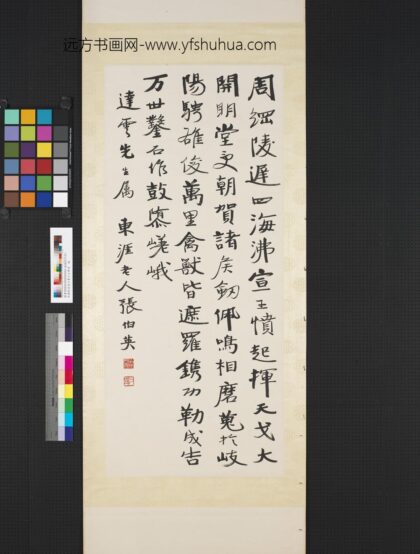 远方书画网-www.yfshuhua.com
周綱陵遲四海沸宣王憤起揮天戈大
開明堂受朝賀諸侯劍佩鳴相磨蒐於岐
陽騁雄俊萬里禽獸皆遮羅鐫功勒成告
万世鑿石作鼓隳嵯峨
達雲先生属 東涯老人張伯英